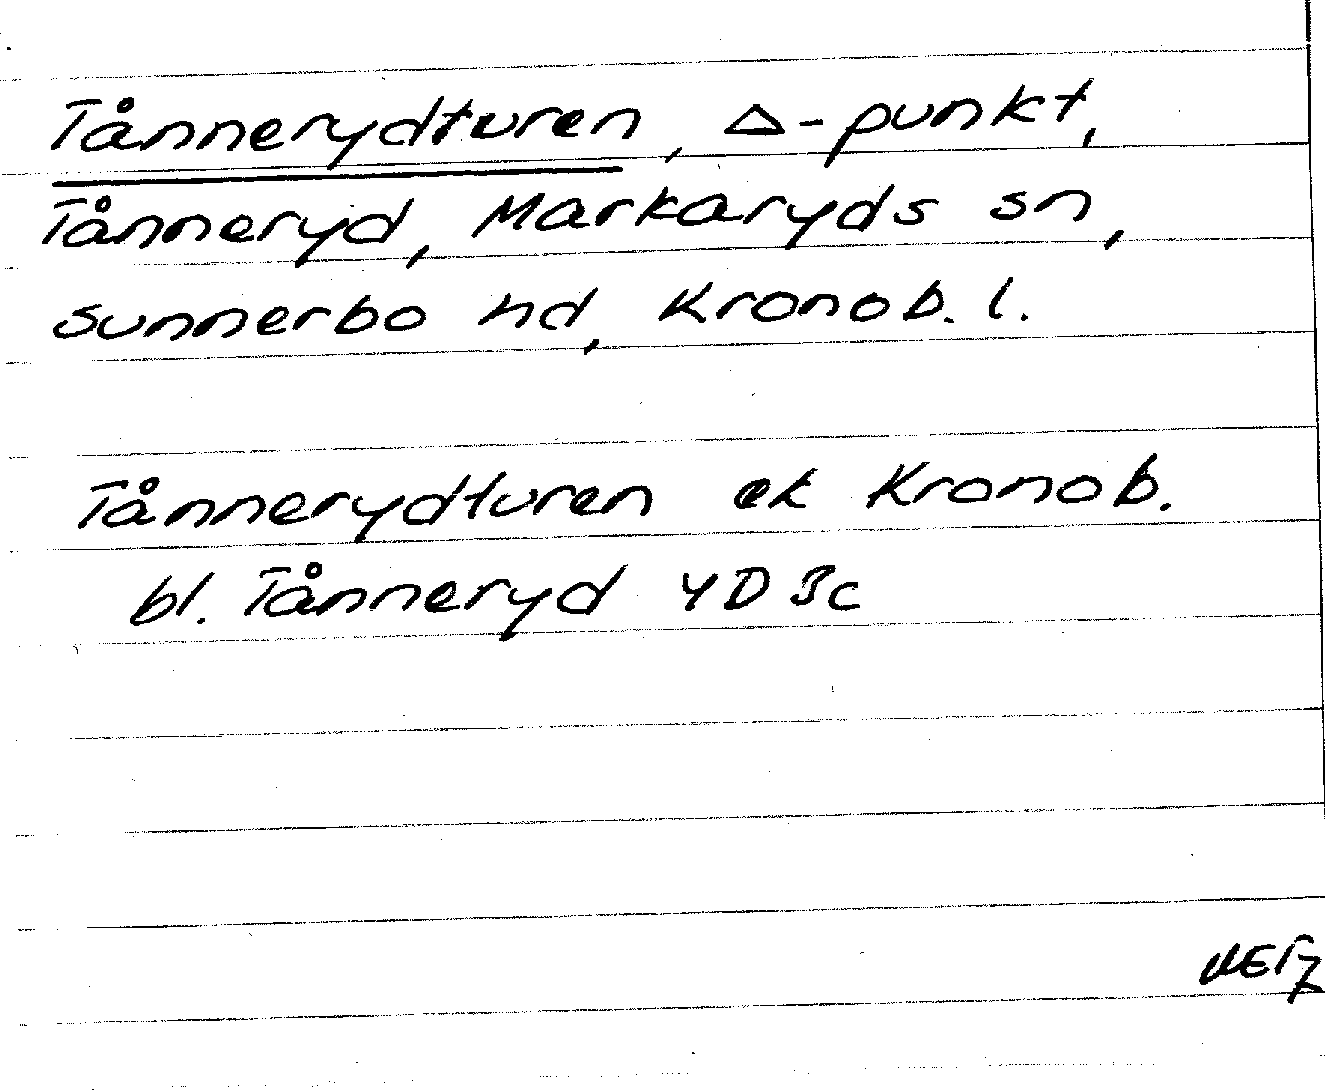 Tånnerydturen, △-punkt,
Tånneryd, Markaryds sn,
Sunnerbo hd, Kronob. l.
Tånnerydturen ek Kronob.
bl. Tånneryd 4D 3c